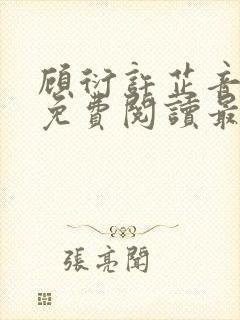 顧衍許芷音
免費閱讀最
張亮聞